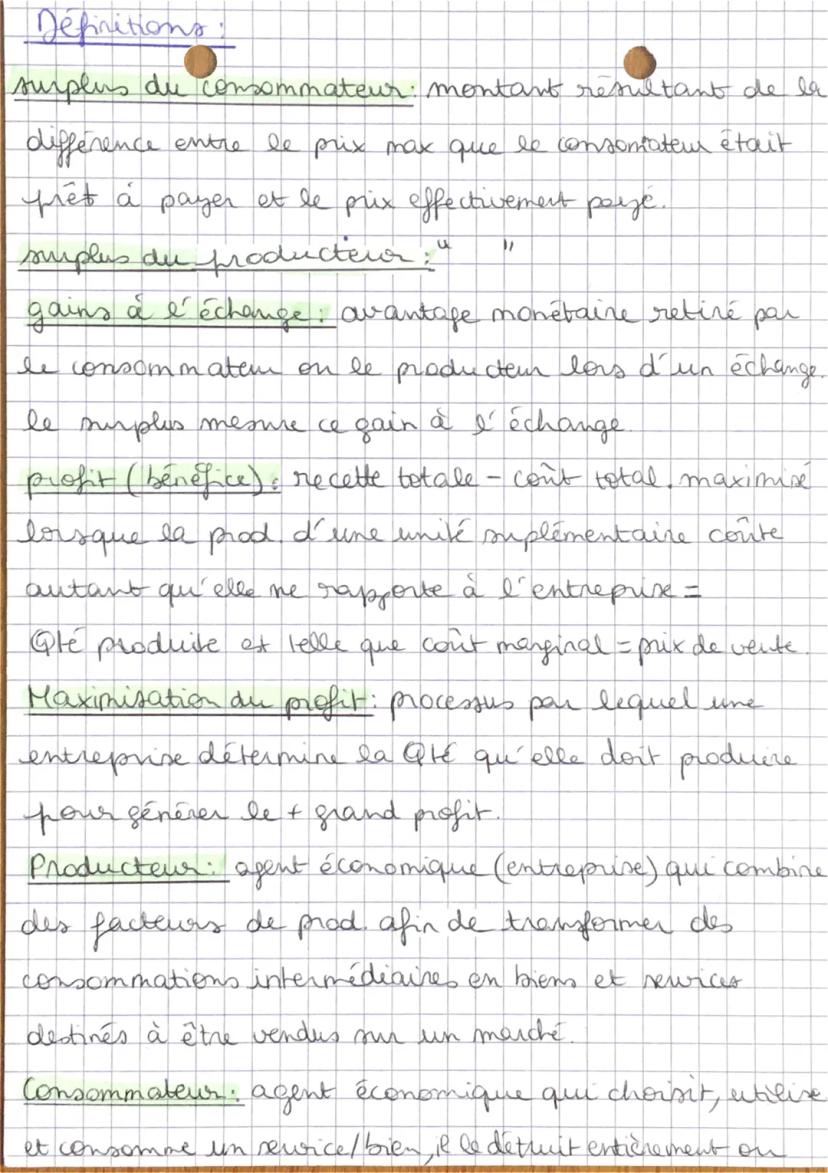 Définitions :
surplus du consommateur : montant résultant de la
différence entre le prix max que le consomateur était
prêt à payer et le prix effectivement payé.
surplus du producteur : " "
gains à l'échange : avantage monétaire retiré par
le consommateur ou le producteur lors d'un échange.
le surplus mesure ce gain à l'échange.
profit (bénéfice) : recette totale - coût total. maximisé
lorsque la prod. d'une unité suplémentaire coûte
autant qu'elle ne rapporte à l'entreprise =
Qté produite est telle que coût marginal = prix de vente.
Maximisation du profit : processus par lequel une
entreprise détermine la Qté qu'elle doit produire
pour générer le + grand profit.
Producteur : agent économique (entreprise) qui combine
des facteurs de prod. afin de transformer des
consommations intermédiaires en biens et services
destinés à être vendus sur un marché.
Consommateur : agent économique qui choisit, utilise
et consomme un service/bien, il le détruit entièrement ou